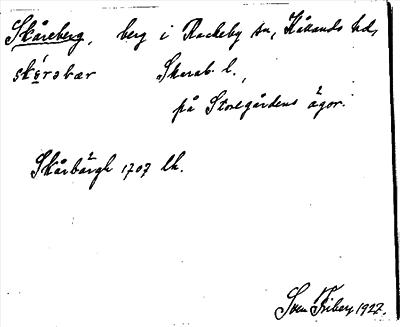 Skåreberg, berg i Rackeby sn, Kållands hd,
skǻrəbær Skarab. l.,
på Storegårdens ägor.
Skårbärgh 1707 lk.
Sven Friberg 1927.